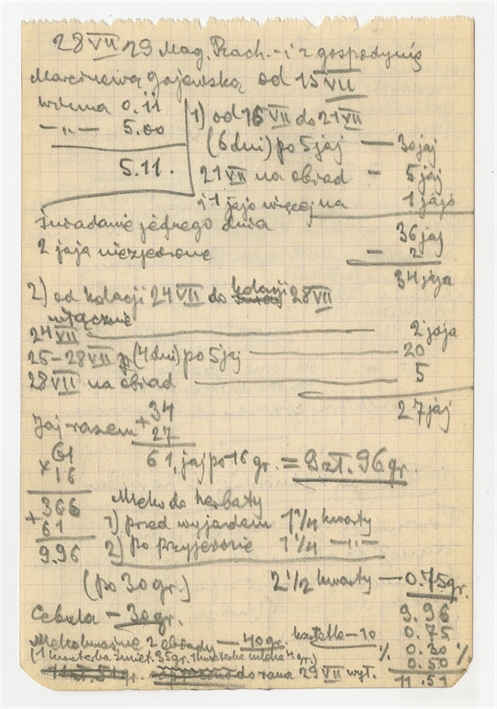 28 VII 29 Mag. Rach. - i z gospodynią
Marcinową Gajewską od 15 VII
winna 0.11
— „ — 5.00
5.11.
1) od 16 VII do 21 VII
(6 dni) po 5 jaj — 30 jaj
21 VII na obiad - 5 jaj
i 1 jajo więcej na 1 jajo
śniadanie jednego dnia 36 jaj
2 jaja niezjedzone — 2
34 jaja
2) od kolacji 24 VII do kolacji 28 VII
włącznie
24 VII 2 jaja
25-28 VII (4 dni) po 5 jaj 20
28 VII na obiad 5
27 jaj
Jaj razem + 34
27
61, jaj po 16 gr. = 9 zł. 96 gr.
61
× 16
366
+ 61
9.96
Mleko do herbaty
1) przed wyjazdem 1 1/4 kwarty
2) po przyjeździe 1 1/4 — „ —
(po 30 gr.) 2 1/2 kwarty — 0.75 gr.
Cebula — 30 gr.
9.96
0.75
0.30
0.50
11.51
Mleko kwaśne 2 obiady — 40 gr.
— 10
do rana 29 VII wył.